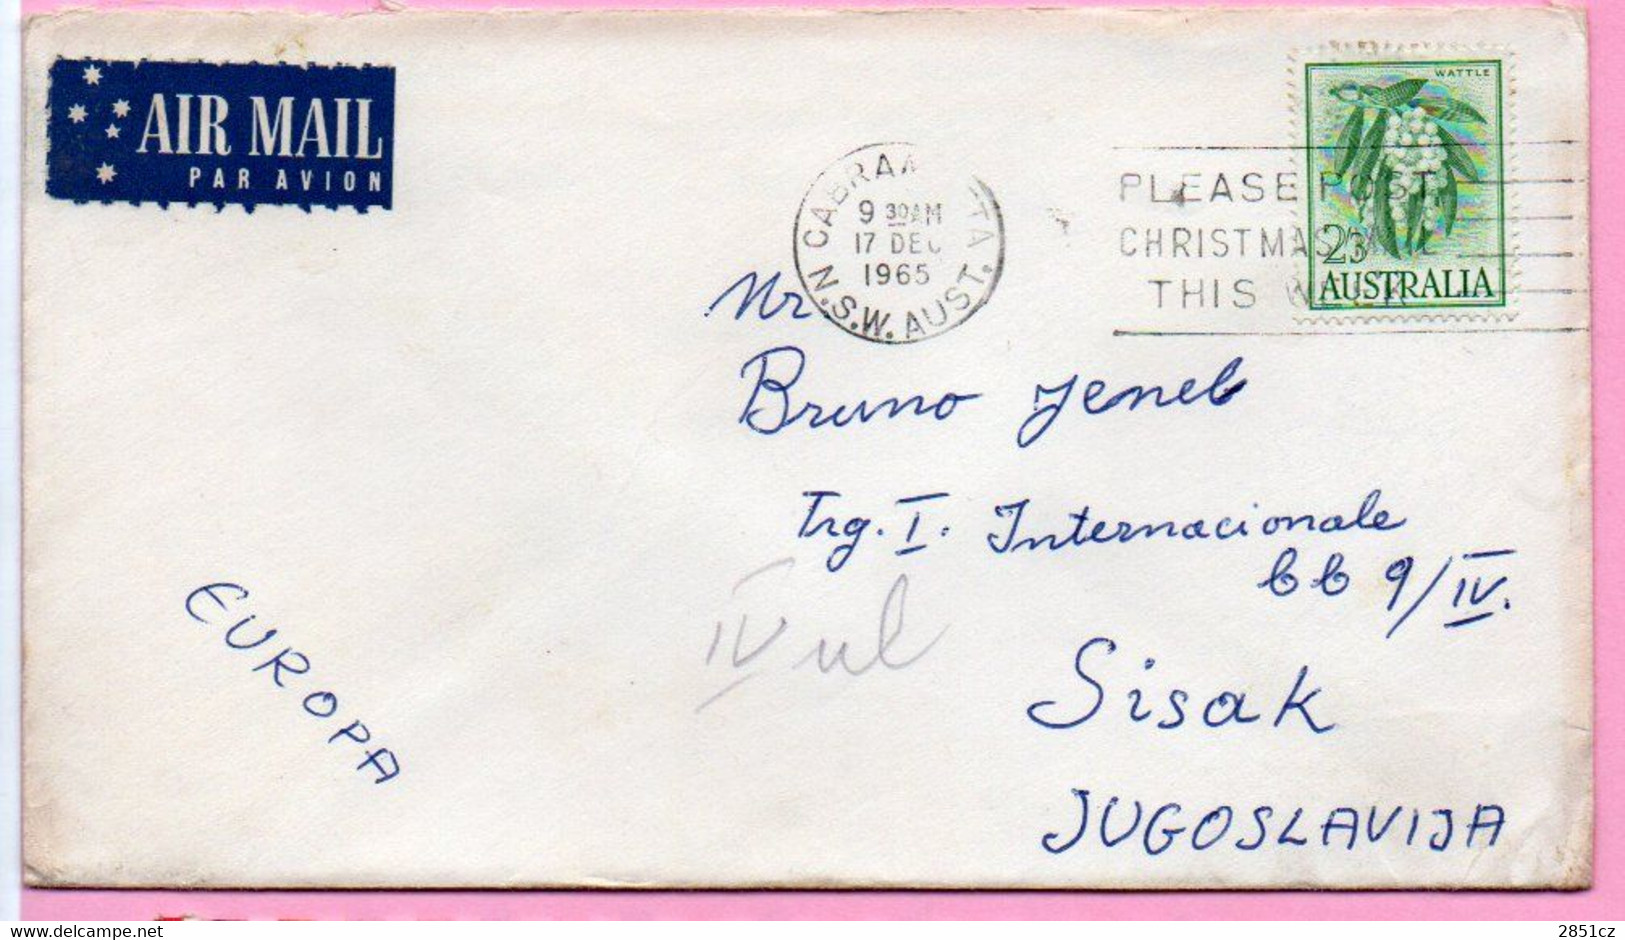 AIR MAIL
PAR AVION
WATTLE
2/3
AUSTRALIA
9 30AM
17 DEC
1965
N.S.W. AUST.
PLEASE POST
CHRISTMAS MAIL
THIS WEEK
Mr.
Bruno Jeneb
Trg. I. Internacionale
bb 9/IV.
Sisak
JUGOSLAVIJA
EUROPA
IV ul
delcampe.net
2851cz